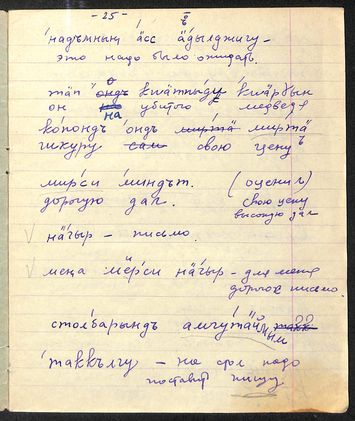 - 25 -
надъмның äсс äдылджигу -
это надо было ожидать.
тäп ондъ кwäтныду кwäрɣын
он на убитого медведя
копондъ ондъ миртä миртä
шкуру сам свою цену
мирси миндыт. (оценил)
дорогую дал. свою цену
высокую дал
√ нäгыр - письмо.
√ меңа мирси нäгыр - для меня
дорогое письмо.
столбарындъ амгу тäй
таккългу - на стол надо
поставит пищу